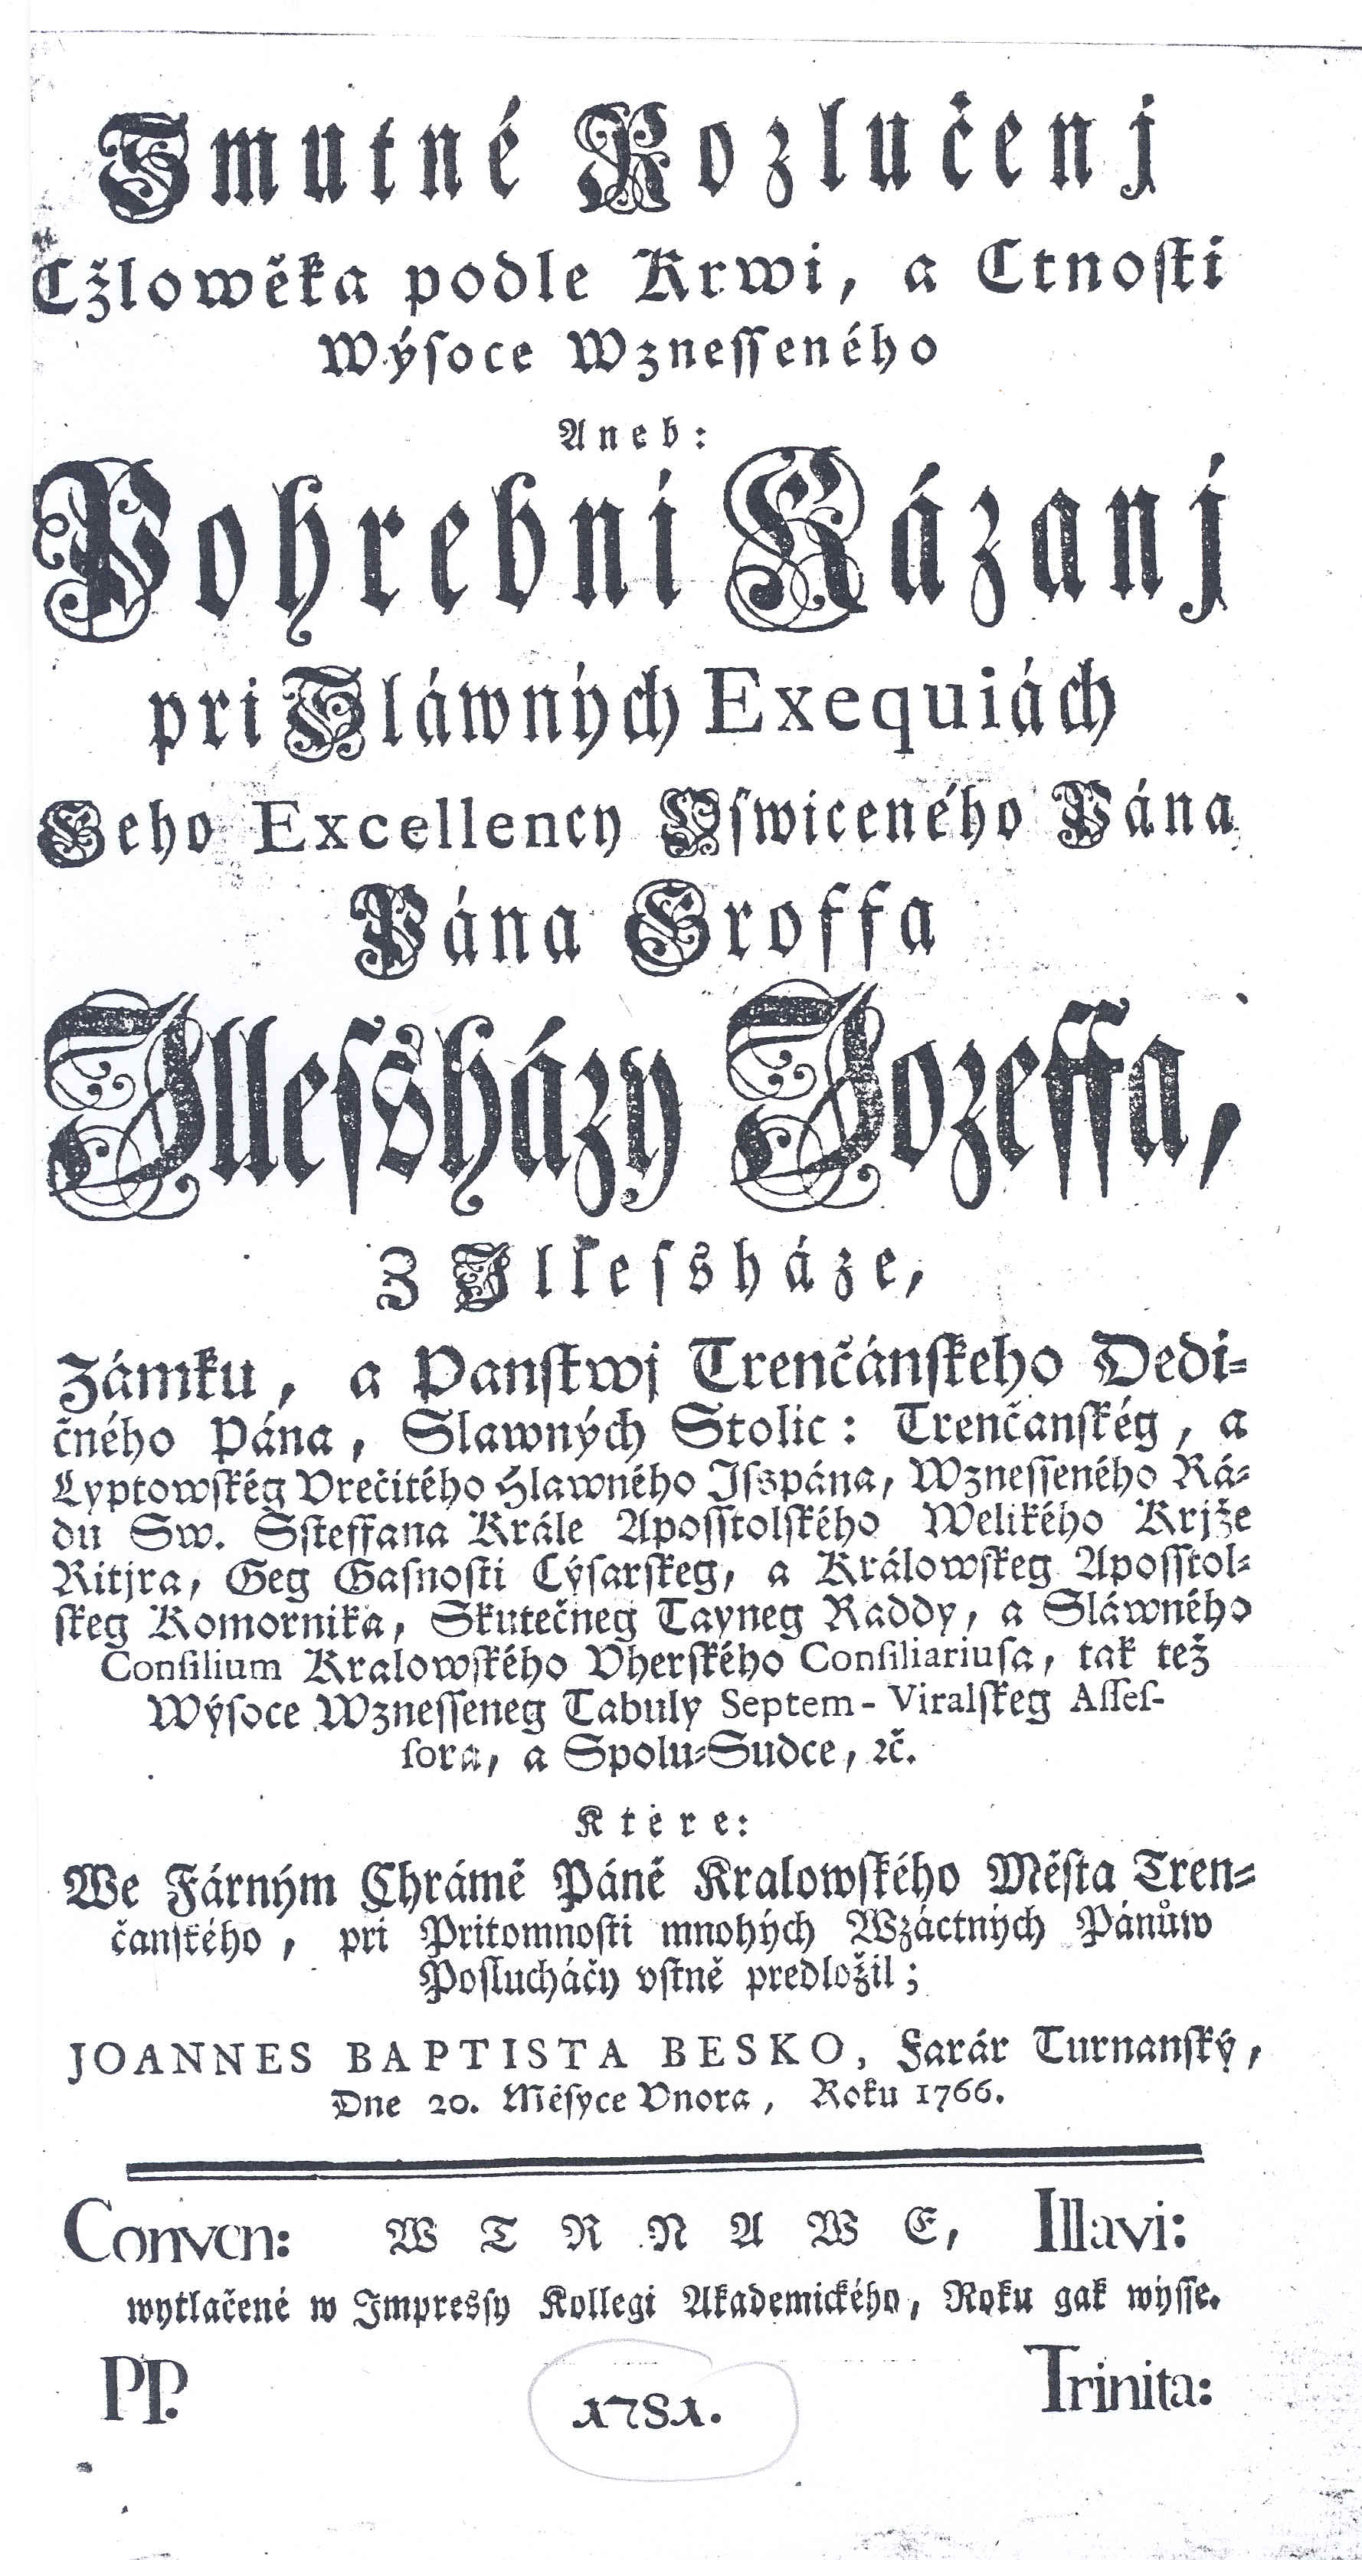 Smutné Rozlučenj
Cžlowěka podle Krwi, a Ctnosti
Wýsoce Wznesseného
Aneb:
Pohrebni Kázanj
pri Sláwných Exequiách
Geho Excellency Oswiceného Pána
Pána Groffa
Illessházy Jozeffa,
Z Illessháze,
Zámku, a Panstwj Trenčánskeho Dedi-
čného Pána, Slawných Stolic: Trenčanskég, a
Lyptowskég Vrečitého Hlawného Isspána, Wznesseného Rá-
du Sw. Ssteffana Krále Aposstolského Welikého Krjže
Ritjra, Geg Gasnosti Cýsarskeg, a Králowskeg Aposstol-
skeg Komornika, Skutečneg Tayneg Raddy, a Sláwného
Consilium Kralowského Vherského Consiliariusa, tak tež
Wýsoce Wznesseneg Tabuly Septem-Viralskeg Asses-
sora, a Spolu-Sudce, ꝛč.
Ktere:
We Fárným Chrámě Páně Kralowského Města Tren-
čanského, pri Pritomnosti mnohých Wzáctných Pánůw
Poslucháčy vstně predložil;
JOANNES BAPTISTA BESKO, Farár Turnanský,
Dne 20. Měsyce Vnora, Roku 1766.
Conven: W TRNAWE, Illavi:
wytlačené w Impressy Kollegi Akademického, Roku gak wýsse.
PP. Trinita:
1781.